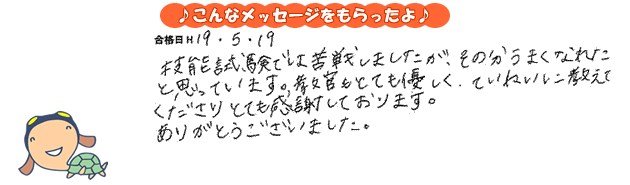 ♪こんなメッセージをもらったよ♪
合格日H19・5・19
技能試験では苦戦しましたが、その分うまくなれた
と思っています。教官もとても優しく、ていねいに教えて
くださりとても感謝しております。
ありがとうございました。